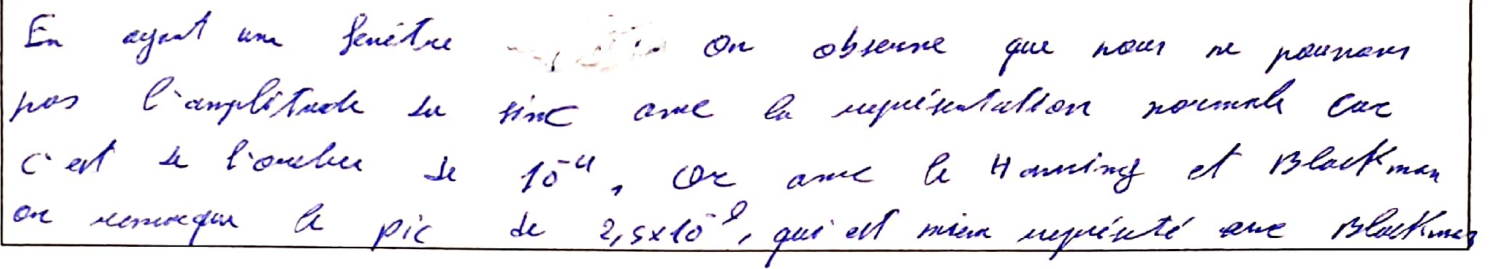 En ayant une fenêtre on observe que nous ne pouvons
pas l'amplitude du sinc avec la représentation normale car
c'est de l'ordre de 10⁻⁴, or avec le Hanning et Blackman
on remarque le pic de 2,5x10⁻⁹, qui est mieux représenté avec Blackman